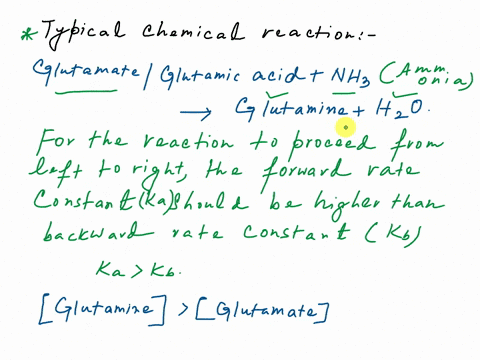 * Typical chemical reaction:-
Glutamate / Glutamic acid + NH3 (Ammonia)
→ Glutamine + H2O.
For the reaction to proceed from
left to right, the forward rate
Constant (Ka) should be higher than
backward rate constant (Kb)
Ka > Kb.
[Glutamine] > [Glutamate]